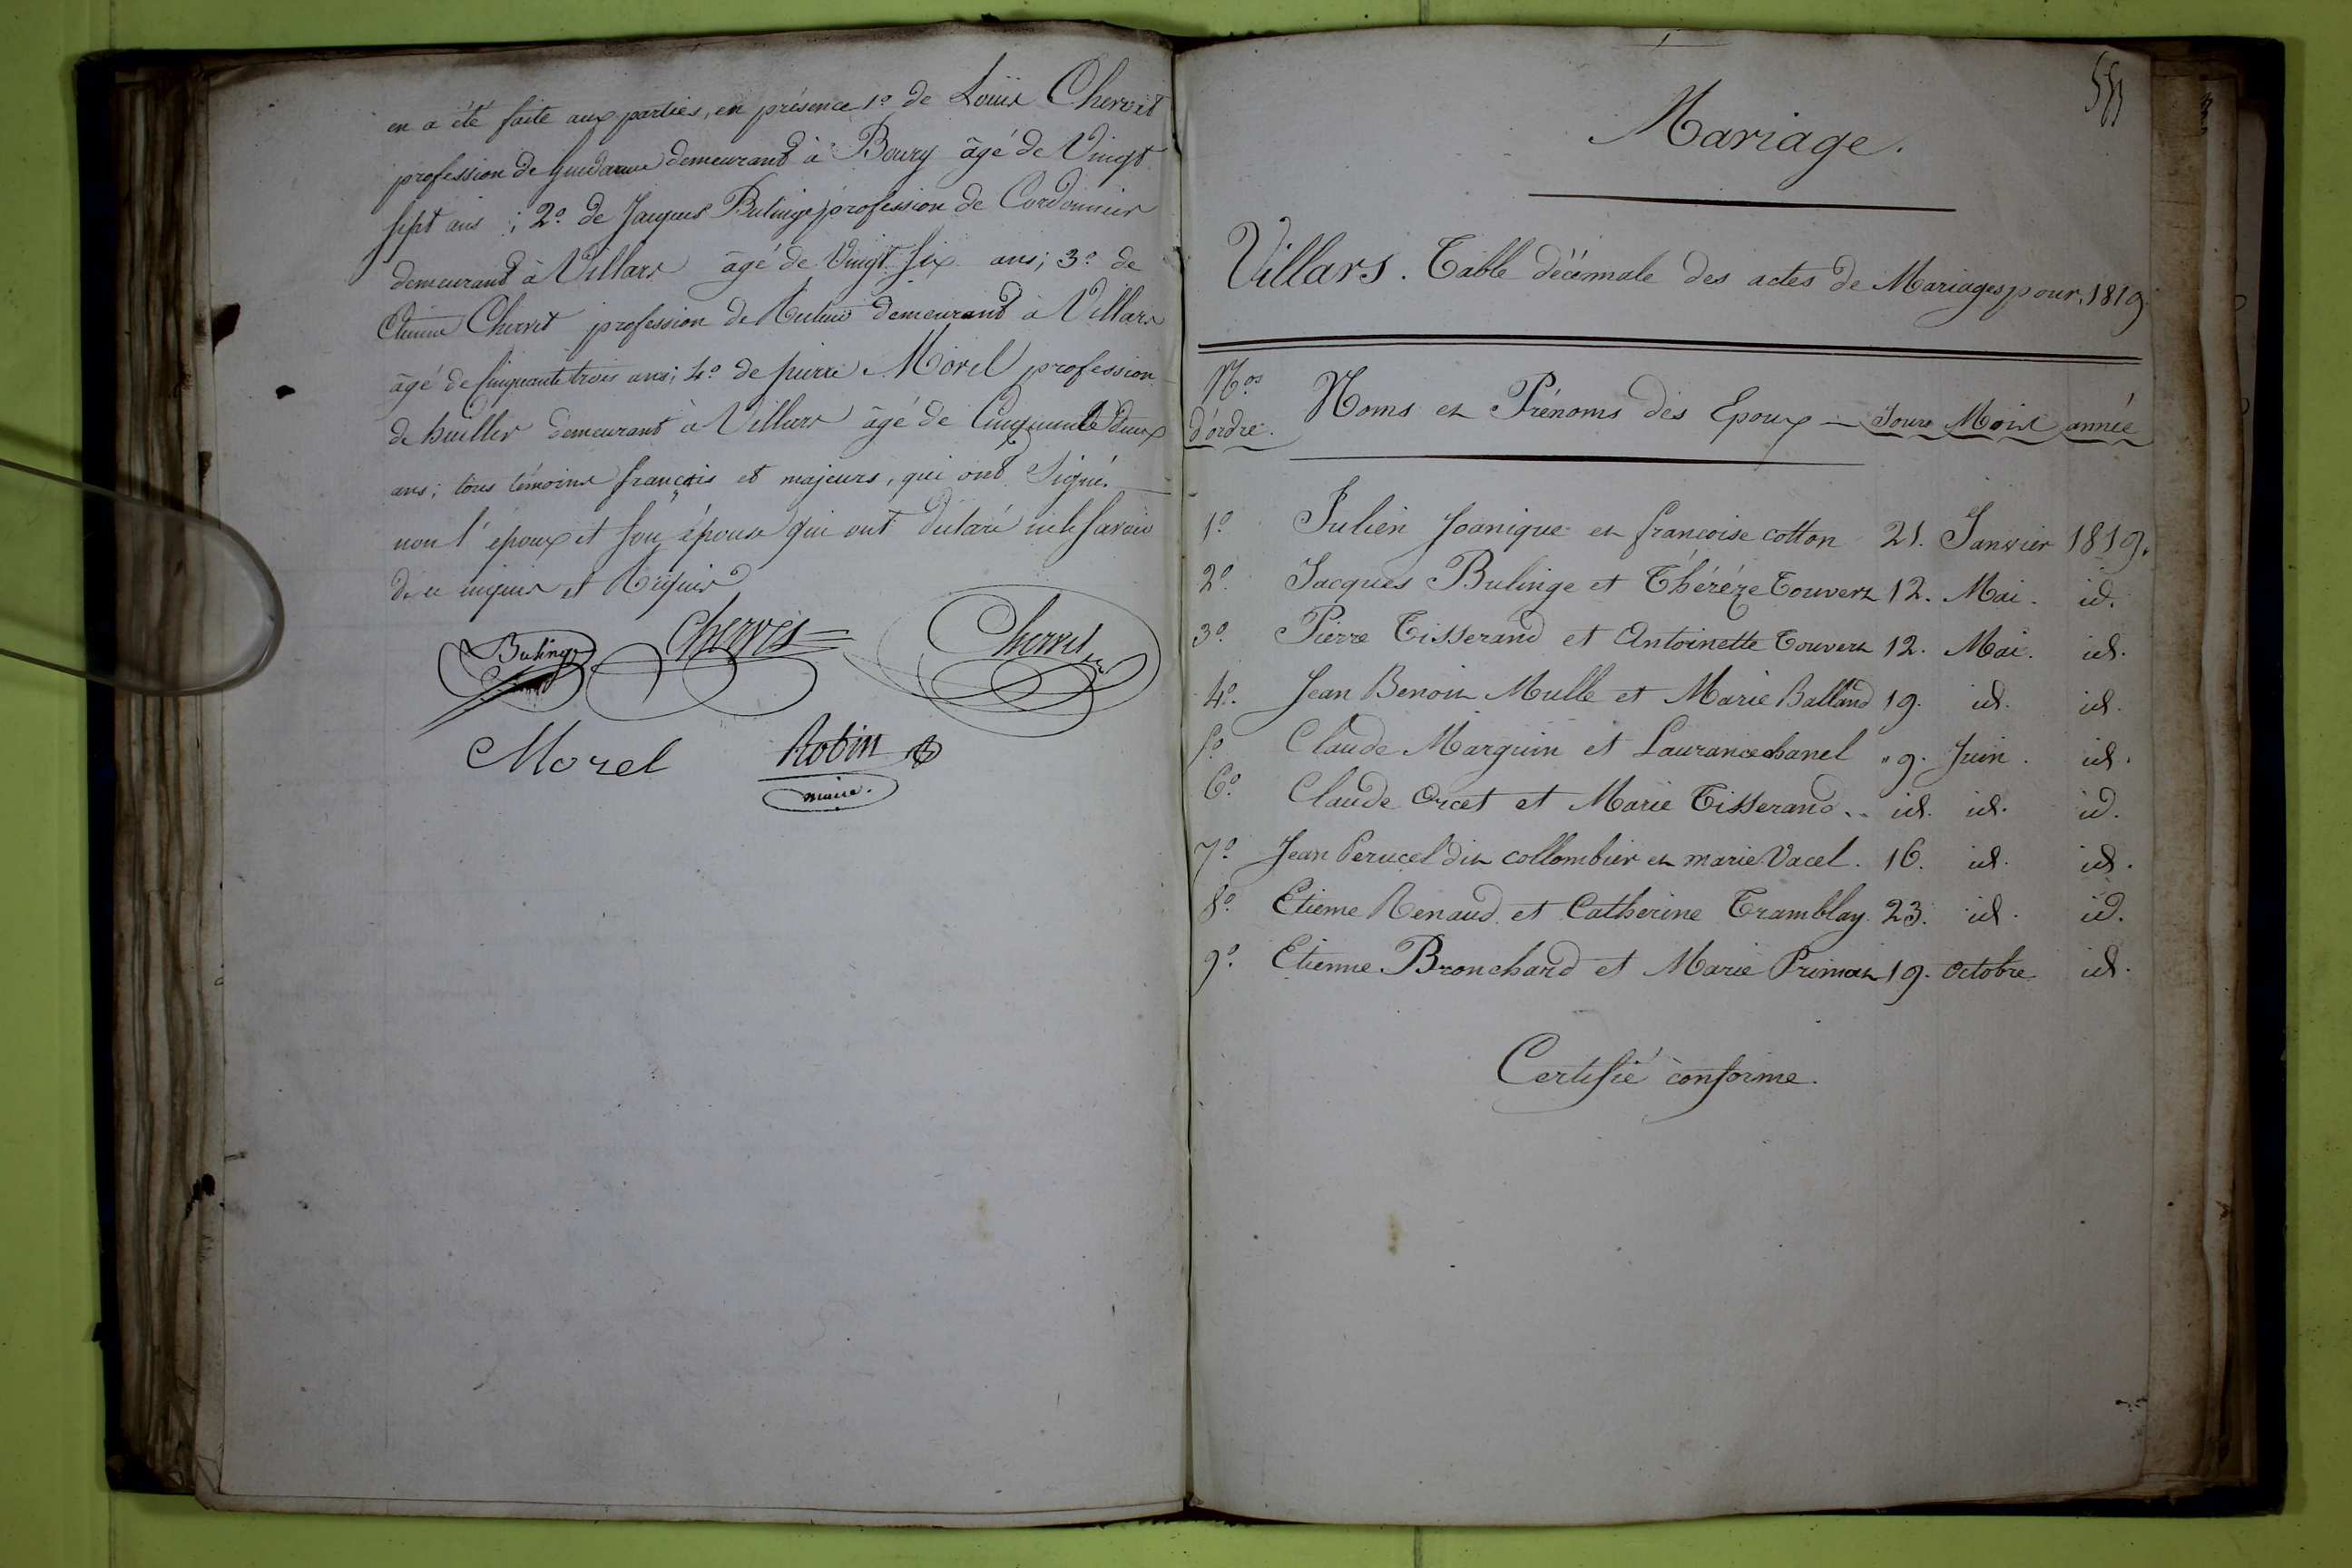 en a été faite aux parties, en présence 1º de Louis Chervet
profession de Gendarme demeurant à Bourg âgé de Vingt
sept ans ; 2º de Jacques Bulinge profession de Cordonnier
demeurant à Villars âgé de Vingt six ans ; 3º de
Etienne Chervet profession de demeurant à Villars
âgé de Cinquante trois ans ; 4º de pierre Morel profession
de huillier demeurant à Villars âgé de Cinquante deux
ans ; tous témoins français et majeurs, qui ont Signé.
non l'époux et son épouse qui ont déclaré ne le savoir
de ce enquis et Requis
Bulinge Chervet Chervet
Morel Robin
maire.
Mariage.
Villars. Table décénnale des actes de Mariages pour 1819.
Nos d'ordre. Noms et Prénoms des Epoux — Jours Mois année
1º Julien Joanique et françoise cotton 21. Janvier 1819.
2º Jacques Bulinge et Théréze Touvert 12. Mai. id.
3º Pierre Tisserand et Antoinette Touvert 12. Mai. id.
4º Jean Benoit Mulle et Marie Balland 19. id. id.
5º Claude Marguin et Laurance chanel " 9. Juin. id.
6º Claude Orcet et Marie Tisserand .. id. id. id.
7º Jean Perucel dit collombier et marie Vacel. 16. id. id.
8º Etienne Renaud et Catherine Tramblay. 23. id. id.
9º Etienne Bronchard et Marie Primat 19. Octobre id.
Certifié conforme.